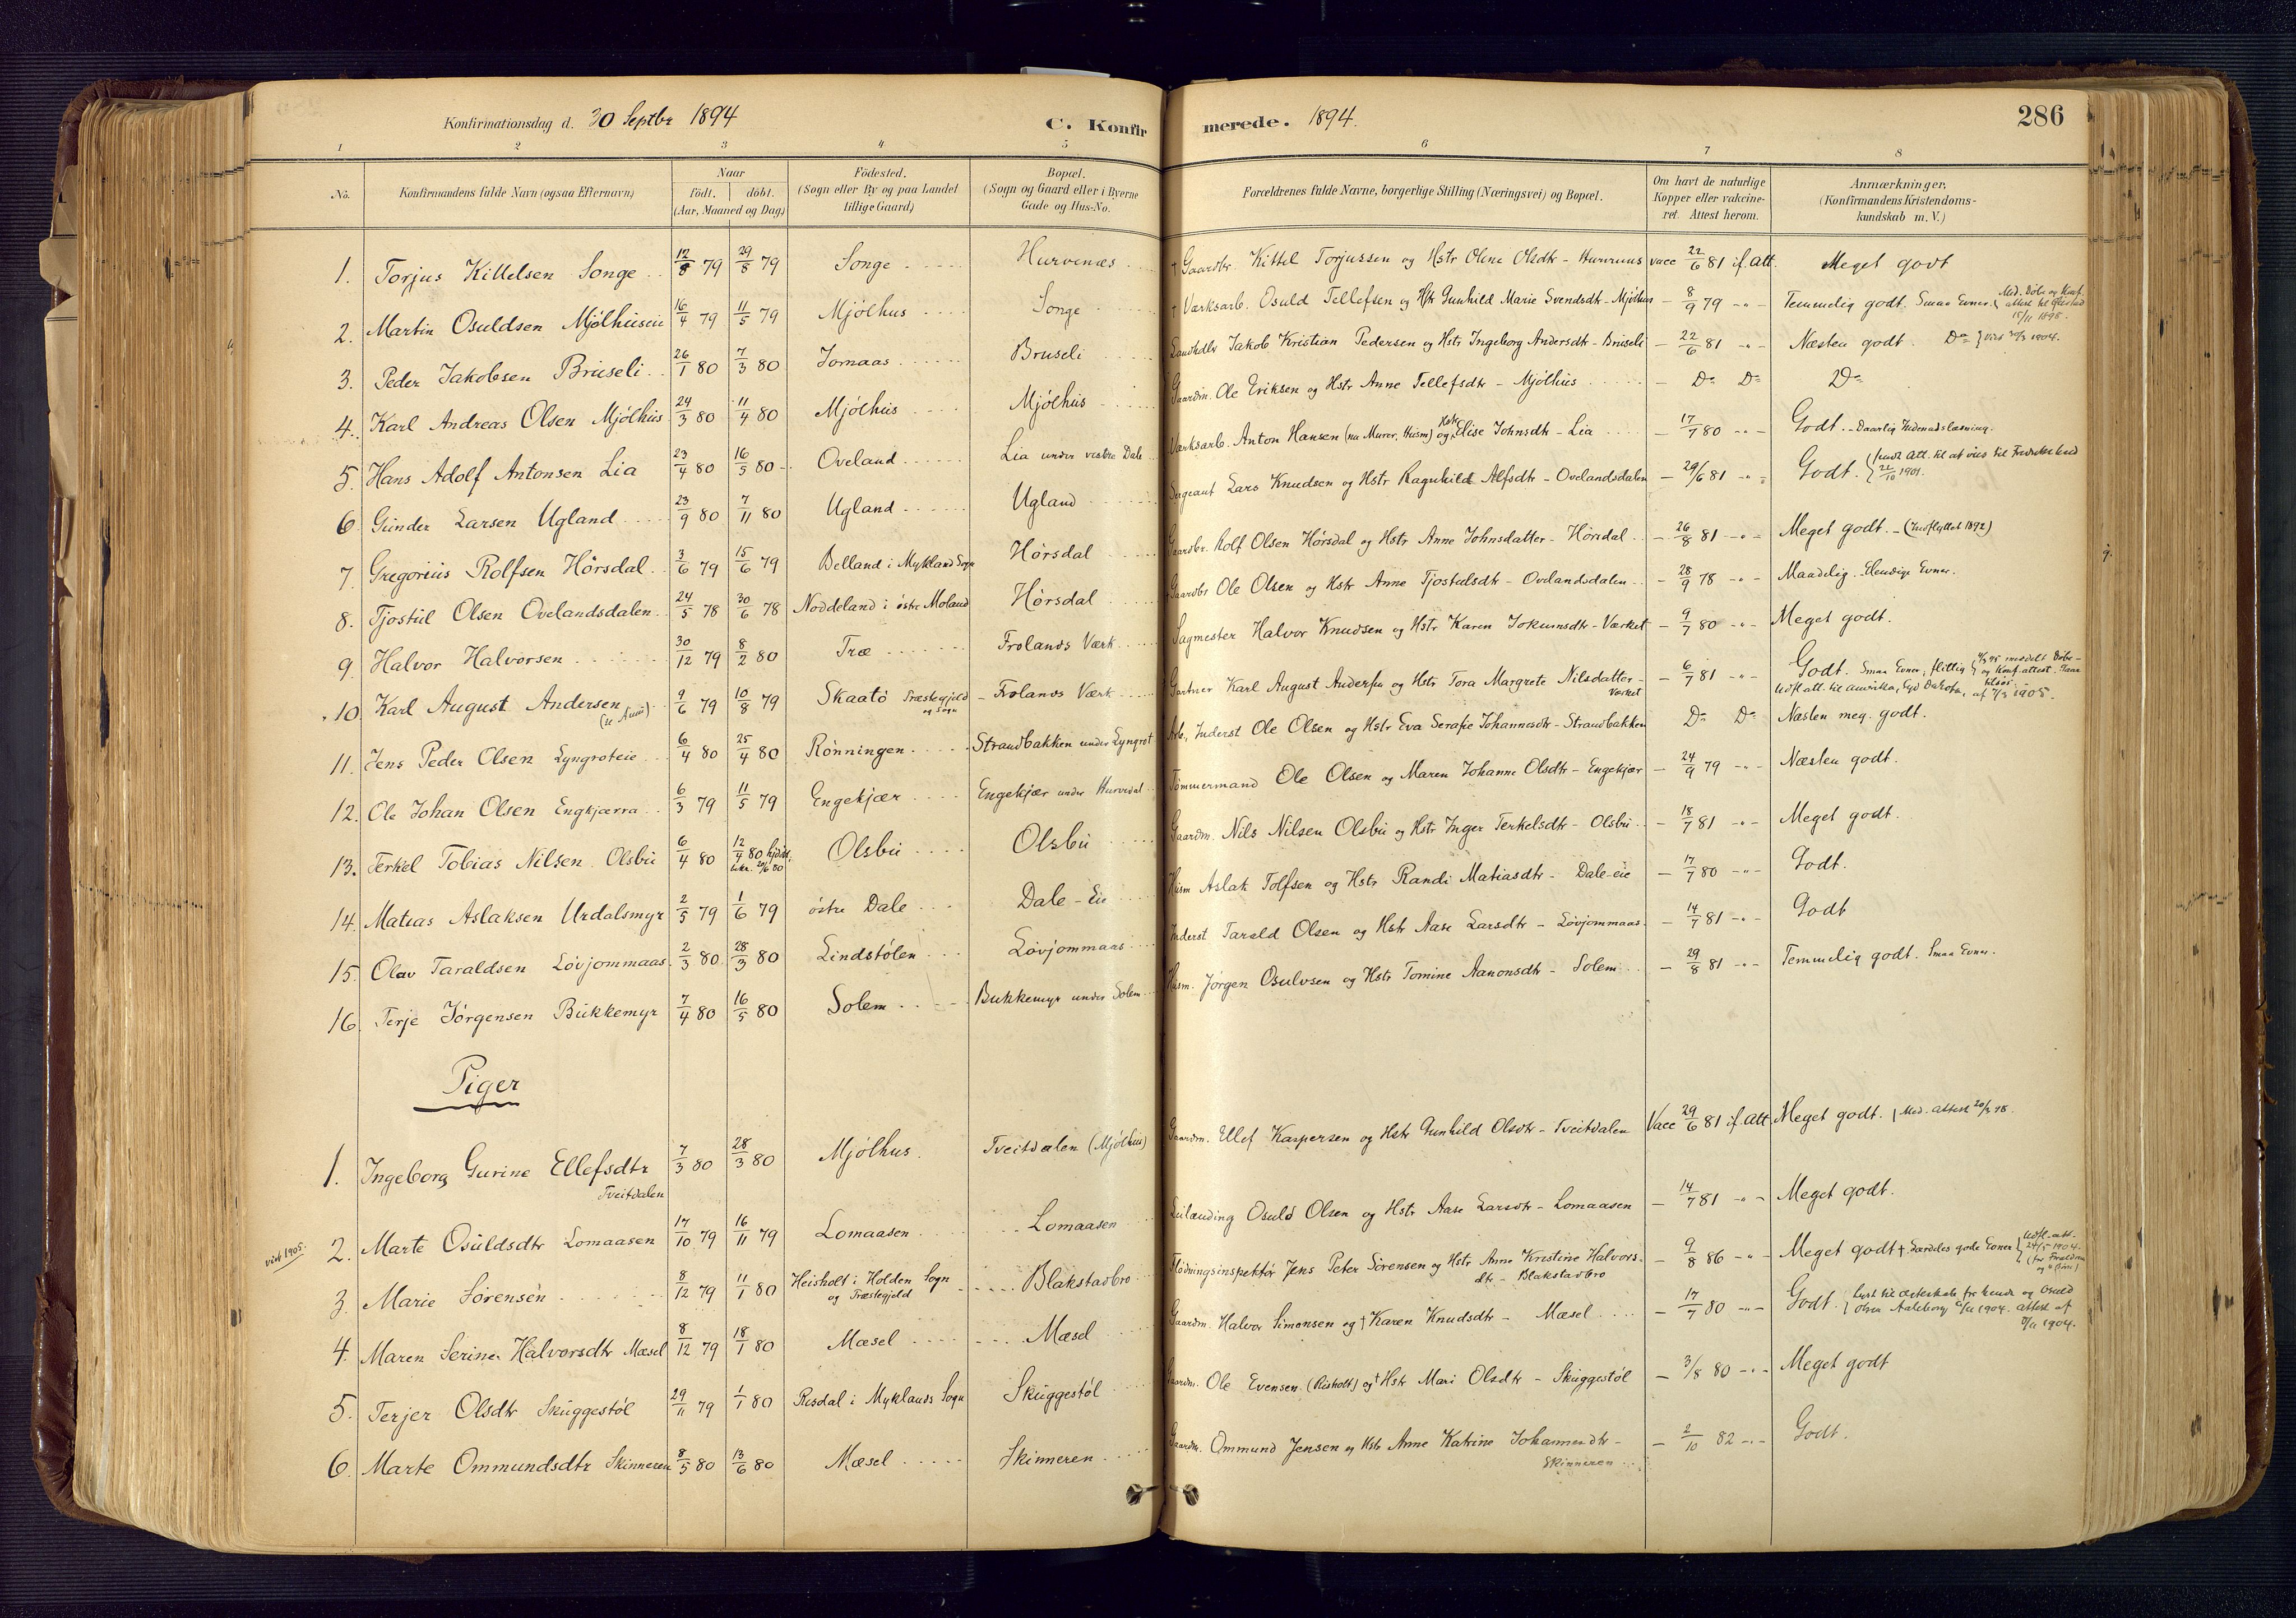 Konfirmationsdag d. 30 Septbr 1894 C. Konfirmerede. 1894. 286
1 2 3 4 5 6 7 8
No. Konfirmandens fulde Navn (ogsaa Efternavn) Naar födt. döbt. (Aar, Maaned og Dag) Födested. (Sogn eller By og paa Landet tillige Gaard) Bopæl. (Sogn og Gaard eller i Byerne Gade og Hus-No. Forældrenes fulde Navne, borgerlige Stilling (Næringsvei) og Bopæl. Om havt de naturlige Kopper eller vakcineret. Attest herom. Anmærkninger. (Konfirmandens Kristendomskundskab m. V.)
1. Torjus Kittelsen Songe 12/8 79 29/8 79 Songe Hurvenæs † Gaardbr. Kittel Torjussen og Hstr Olene Olsdtr - Hurvenæs vacc 22/6 81 if. Att. Meget godt
2. Martin Osuldsen Mjølhuseie 16/4 79 11/5 79 Mjølhus Songe † Værksarb. Osuld Tellefsen og Hstr Gunhild Marie Svendsdtr - Mjølhus - 8/9 79 -"- Temmelig godt. Smaa Evner. { Med. Döbe og Konf. attest til
3. Peder Jakobsen Bruseli 26/1 80 7/3 80 Jomaas Bruseli Landhdlr Jakob Kristian Pedersen og Hstr Ingeborg Andersdtr - Bruseli - 22/6 81 -"- Næsten godt. Do }
4. Karl Andreas Olsen Mjølhus 24/3 80 11/4 80 Mjølhus Mjølhus Gaardm. Ole Eriksen og Hstr Anne Tellefsdtr - Mjølhus - Do Do Do
5. Hans Adolf Antonsen Lia 23/4 80 16/5 80 Oveland Lia under vestre Dale Værksarb. Anton Hansen (nu Murer, Husm) og Hstr Elise Johnsdtr - Lia - 17/7 80 -"- Godt. - Daarlig Indenadslæsning.
6. Gunder Larsen Ugland 23/9 80 7/11 80 Ugland Ugland Sergeant Lars Knudsen og Hstr Ragnhild Alfsdtr - Ovelandsdalen - 29/6 81 -"- Godt. { 22/10 1901.
7. Gregorius Rolfsen Hørsdal 3/6 79 15/6 79 Belland i Mykland Sogn Hørsdal Gaardbr. Rolf Olsen Hørsdal og Hstr Anne Johnsdatter - Hørsdal - 26/8 81 -"- Meget godt. - (Indflyttet 1892)
8. Tjostul Olsen Ovelandsdalen 24/5 78 30/6 78 Noddeland i østre Moland Hørsdal Gaardbr Ole Olsen og Hstr Anne Tjostulsdtr - Ovelandsdalen - 28/9 78 -"- Maadelig. Elendige Evner.
9. Halvor Halvorsen 30/12 79 8/2 80 Træ Frolands Værk Sagmester Halvor Knudsen og Hstr Karen Jokumsdtr - Værket - 9/7 80 -"- Meget godt.
10. Karl August Andersen 9/6 79 10/8 79 Skaatø Præstegjeld og Sogn - Frolands Værk Gartner Karl August Andersen og Hstr Tora Margrete Nilsdatter - Værket - 6/7 81 -"- Godt. Smaa Evner, flittig { meddelt Döbe- og Konf.attest.
Udfl. att. til Amerika, Syd Dakota, af 1905.
11. Jens Peder Olsen Lyngroteie 6/4 80 25/4 80 Rønningen Strandbakken under Lyngrot Arb., Inderst Ole Olsen og Hstr Eva Serafie Johannesdtr - Strandbakken Do Do Næsten meg. godt.
12. Ole Johan Olsen Engkjærra 6/3 79 11/5 79 Engekjær Engekjær under Hurvedal Tømmermand Ole Olsen og Maren Johanne Olsdtr - Engekjær - 24/9 79 -"- Næsten godt.
13. Terkel Tobias Nilsen Olsbu 6/4 80 12/4 80 hjdbt. bekr. 20/6 80 Olsbu Olsbu Gaardm. Nils Nilsen Olsbu og Hstr Inger Terkelsdtr - Olsbu - 18/7 81 -"- Meget godt.
14. Matias Aslaksen Urdalsmyr 2/5 79 1/6 79 østre Dale Dale-Eie Husm Aslak Tolfsen og Hstr Randi Matiasdtr - Dale-eie - 17/7 80 -"- Godt.
15. Olav Taraldsen Løvjommaas 2/3 80 28/3 80 Lindstølen Løvjommaas Inderst Tarald Olsen og Hstr Aase Larsdtr - Løvjommaas - 14/7 81 -"- Godt
16. Terje Jørgensen Bukkemyr 7/4 80 16/5 80 Solem Bukkemyr under Solem Husm. Jørgen Osulvsen og Hstr Tomine Aanonsdtr - Solem - 29/8 81 -"- Temmelig godt. Smaa Evner.
Piger
1. Ingeborg Gurine Ellefsdtr Tveitdalen 7/3 80 28/3 80 Mjølhus. Tveitdalen (Mjølhus) Gaardm. Ellef Kaspersen og Hstr Gunhild Olsdtr - Tveitdalen Vacc 29/6 81 if. Att. Meget godt. { Med. attest
2. Marte Osuldsdtr Lomaasen 17/10 79 16/11 79 Lomaasen Lomaasen Leilænding Osuld Olsen og Hstr Aase Larsdtr - Lomaasen - 14/7 81 -"- Meget godt.
3. Marie Sørensen 8/12 79 11/1 80 Heisholt i Holden Sogn og Præstegjeld Blakstadbro Flødningsinspektør Jens Peter Sørensen og Hstr Anne Kristine Halvorsdtr - Blakstadbro - 9/8 86 -"- Meget godt +. Særdeles gode Evner { Udfl.-att. 24/5 1904.
4. Maren Serine Halvorsdtr Mæsel 8/12 79 18/1 80 Mæsel Mæsel Gaardm. Halvor Simonsen og † Karen Knudsdtr - Mæsel - 17/7 80 -"- Godt. { Lyst til Ægteskab for hende og Osuld Olsen 1904. attest af 1904.
5. Terjer Olsdtr Skuggestøl 29/11 79 1/1 80 Risdal i Myklands Sogn Skuggestøl Gaardm. Ole Evensen (Risholt) og † Hstr Mari Olsdtr - Skuggestøl - 3/8 80 -"- Meget godt
6. Marte Ommundsdtr Skinneren 8/5 80 13/6 80 Mæsel Skinneren Gaardm. Ommund Jensen og Hstr Anne Katrine Johannesdtr - Skinneren - 2/10 82 -"- Godt.